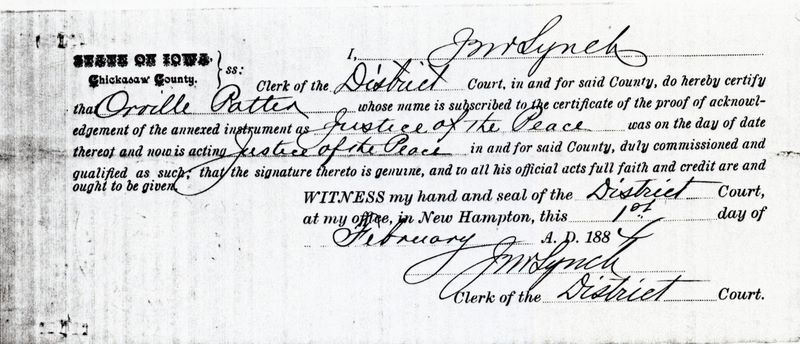 STATE OF IOWA,
Chickasaw County.
ss:
I, Jno Lynch
Clerk of the District Court, in and for said County, do hereby certify
that Orville Patten whose name is subscribed to the certificate of the proof of acknowl-
edgement of the annexed instrument as Justice of the Peace was on the day of date
thereof and now is acting Justice of the Peace in and for said County, duly commissioned and
qualified as such; that the signature thereto is genuine, and to all his official acts full faith and credit are and
ought to be given.
WITNESS my hand and seal of the District Court,
at my office, in New Hampton, this 1st day of
February A. D. 1884
Jno Lynch
Clerk of the District Court.